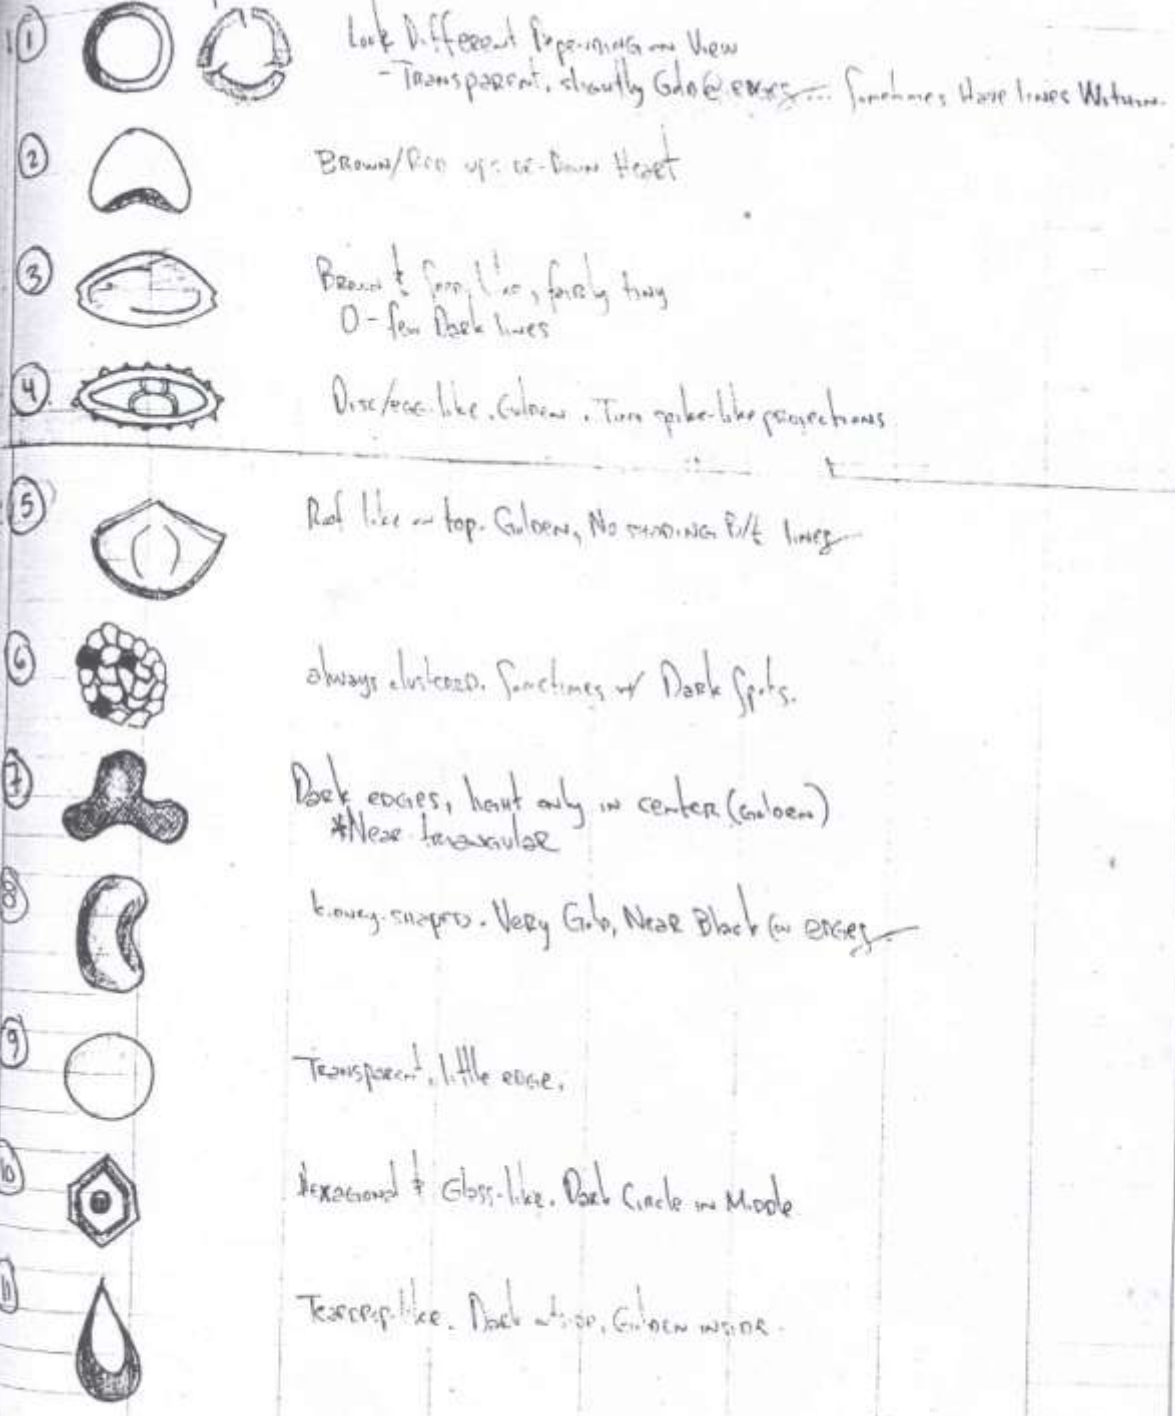 1 Look Different Depending on View
- Transparent, slightly Gold @ edges... Sometimes Have lines Within.
2 Brown/Red upside-Down Heart
3 Brown & Seed like, fairly tiny
0 - few Dark lines
4 Disc/egg-like. Golden. Tiny spike-like projections
5 Roof like on top. Golden, No shading B/t lines
6 always clustered. Sometimes w/ Dark Spots.
7 Dark edges, light only in center (Golden)
*Near triangular
8 kidney-shaped. Very Gold, Near Black on edges.
9 Transparent, little edge.
10 Hexagonal & Glass-like. Dark Circle in Middle
11 Teardrop-like. Dark outside, Golden inside.